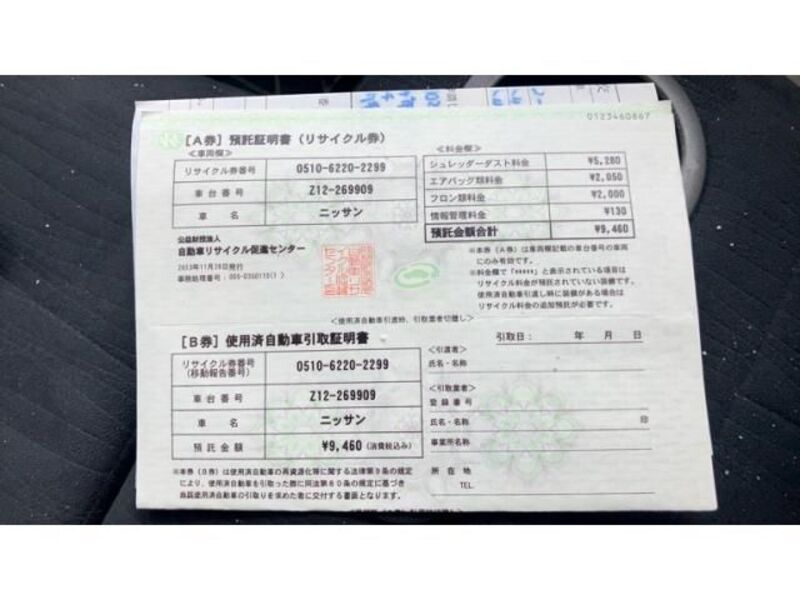 0123460867
[A券] 預託証明書 (リサイクル券)
≪車両欄≫
リサイクル券番号 0510-6220-2299
車台番号 Z12-269909
車名 ニッサン
公益財団法人
自動車リサイクル促進センター
≪料金欄≫
シュレッダーダスト料金 ¥5,280
エアバッグ類料金 ¥2,050
フロン類料金 ¥2,000
情報管理料金 ¥130
預託金額合計 ¥9,460
※本券(A券)は車両欄記載の車台番号の車両
にのみ有効です。
※料金欄で「*****」と表示されている項目は
リサイクル料金が預託されていない装備です。
使用済自動車引渡し時に装備がある場合は
リサイクル料金の追加預託が必要です。
<使用済自動車引渡時、引取業者切離し>
[B券] 使用済自動車引取証明書
リサイクル券番号
(移動報告番号) 0510-6220-2299
車台番号 Z12-269909
車名 ニッサン
預託金額 ¥9,460 (消費税込み)
※本券(B券)は使用済自動車の再資源化等に関する法律第9条の規定
により、使用済自動車を引取った際に同法第80条の規定に基づき
当該使用済自動車の引取りを求めた者に交付する書面となります。
引取日: 年 月 日
<引渡者>
氏名・名称
<引取業者>
登録番号
氏名・名称 印
事業所名称
所在地
TEL.